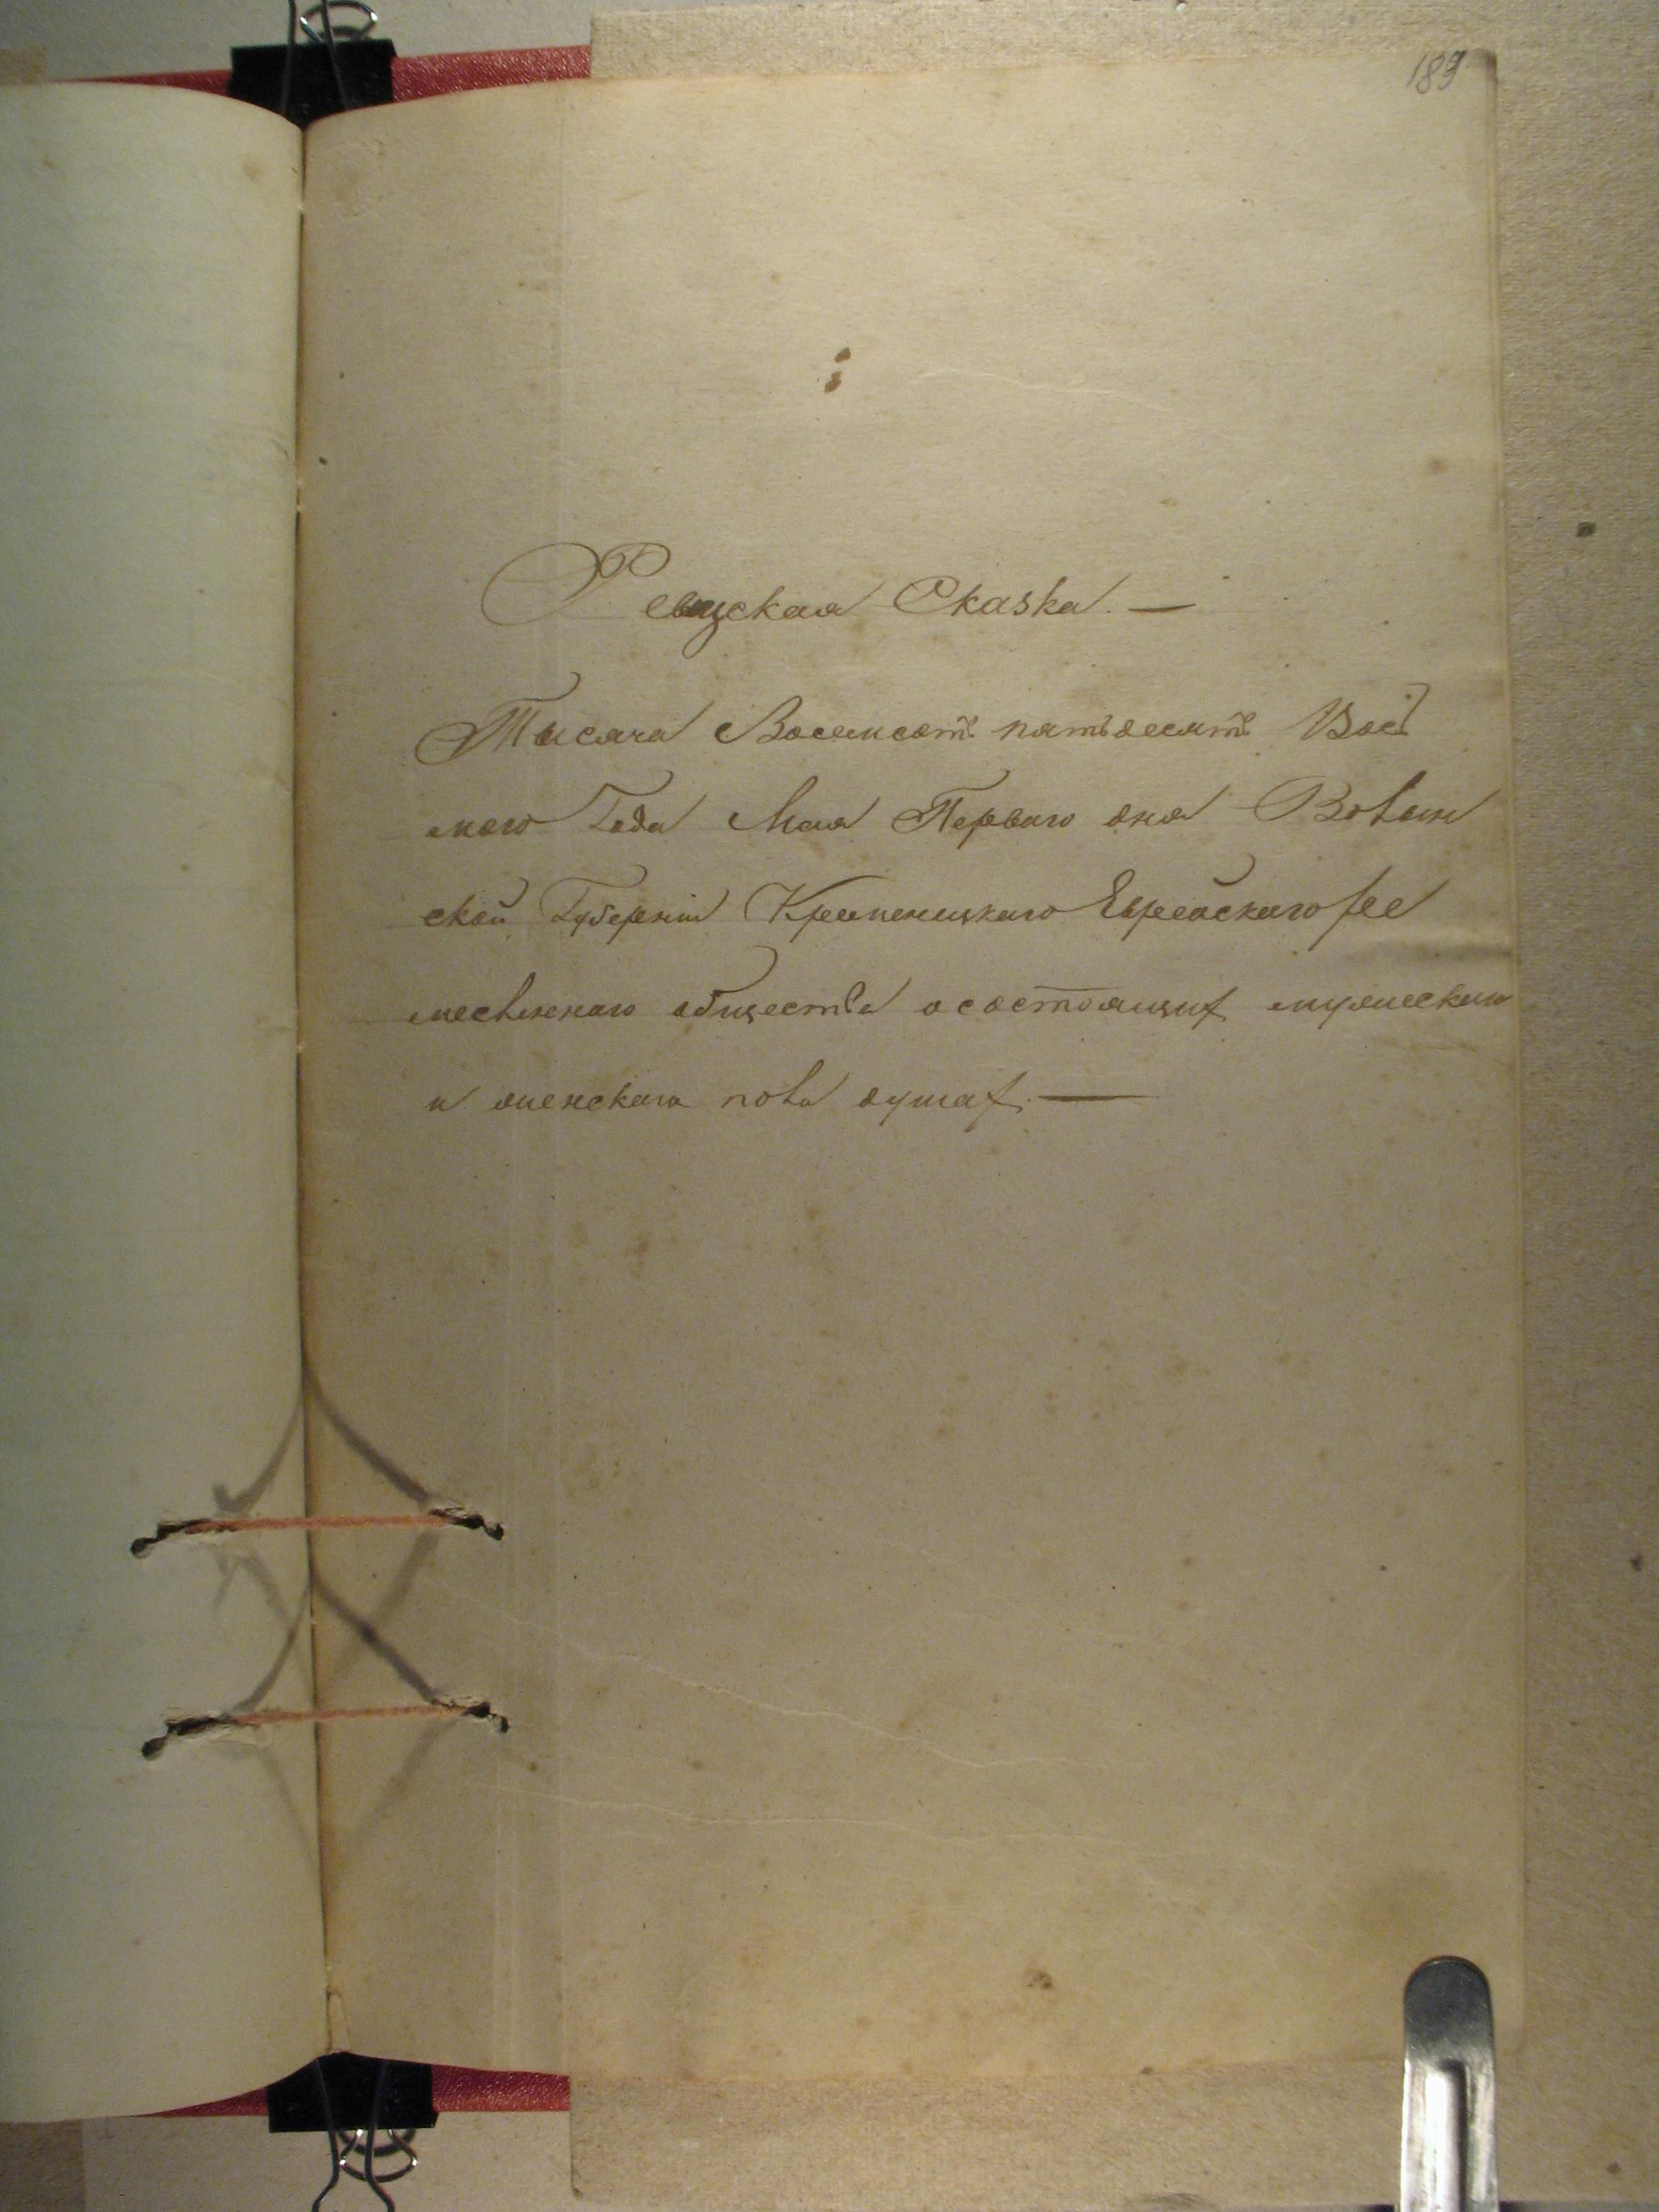 189
Ревизская Сказка. —
Тысяча Восемсотъ пятьдесятъ Вось
мого Года Мая Перваго дня Волын
ской Губерніи Кременецкаго Еврейскаго ре
месленаго общества о состоящих мужескаго
и женскаго пола душах. —